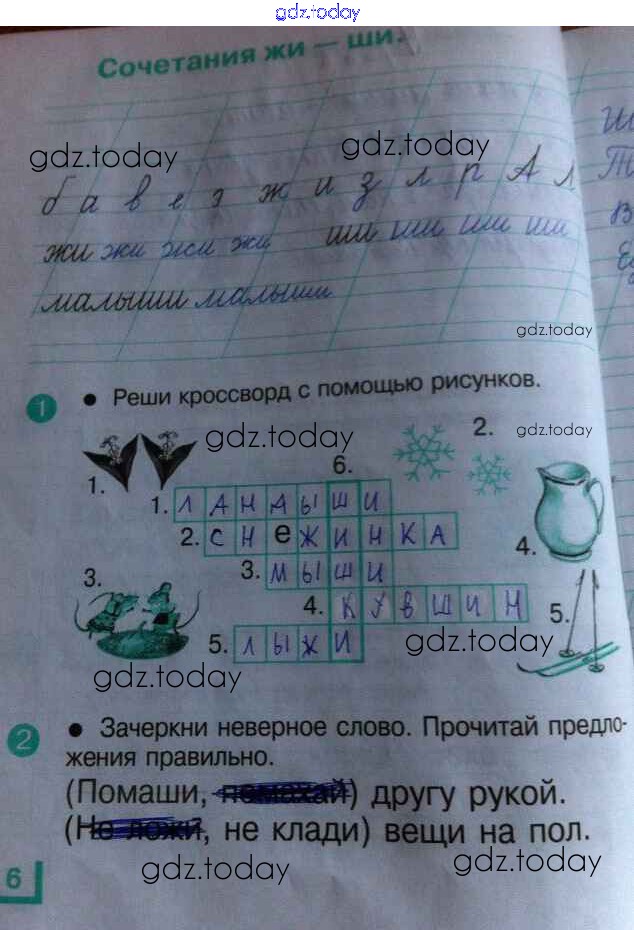 gdz.today
Сочетания жи – ши.
gdz.today gdz.today
б а в е з ж и з л р А л
жи жи жи жи ши ши ши ши
малыши малыши
gdz.today
1 • Реши кроссворд с помощью рисунков.
gdz.today 2. gdz.today
6.
1. 1. ЛАНДЫШИ
2. СНеЖИНКА
4.
3. 3. МЫШИ
4. КУВШИН 5.
5. ЛЫЖИ gdz.today
gdz.today
2 • Зачеркни неверное слово. Прочитай предло-
жения правильно.
(Помаши, помахай) другу рукой.
(Не ложи, не клади) вещи на пол.
gdz.today gdz.today
6